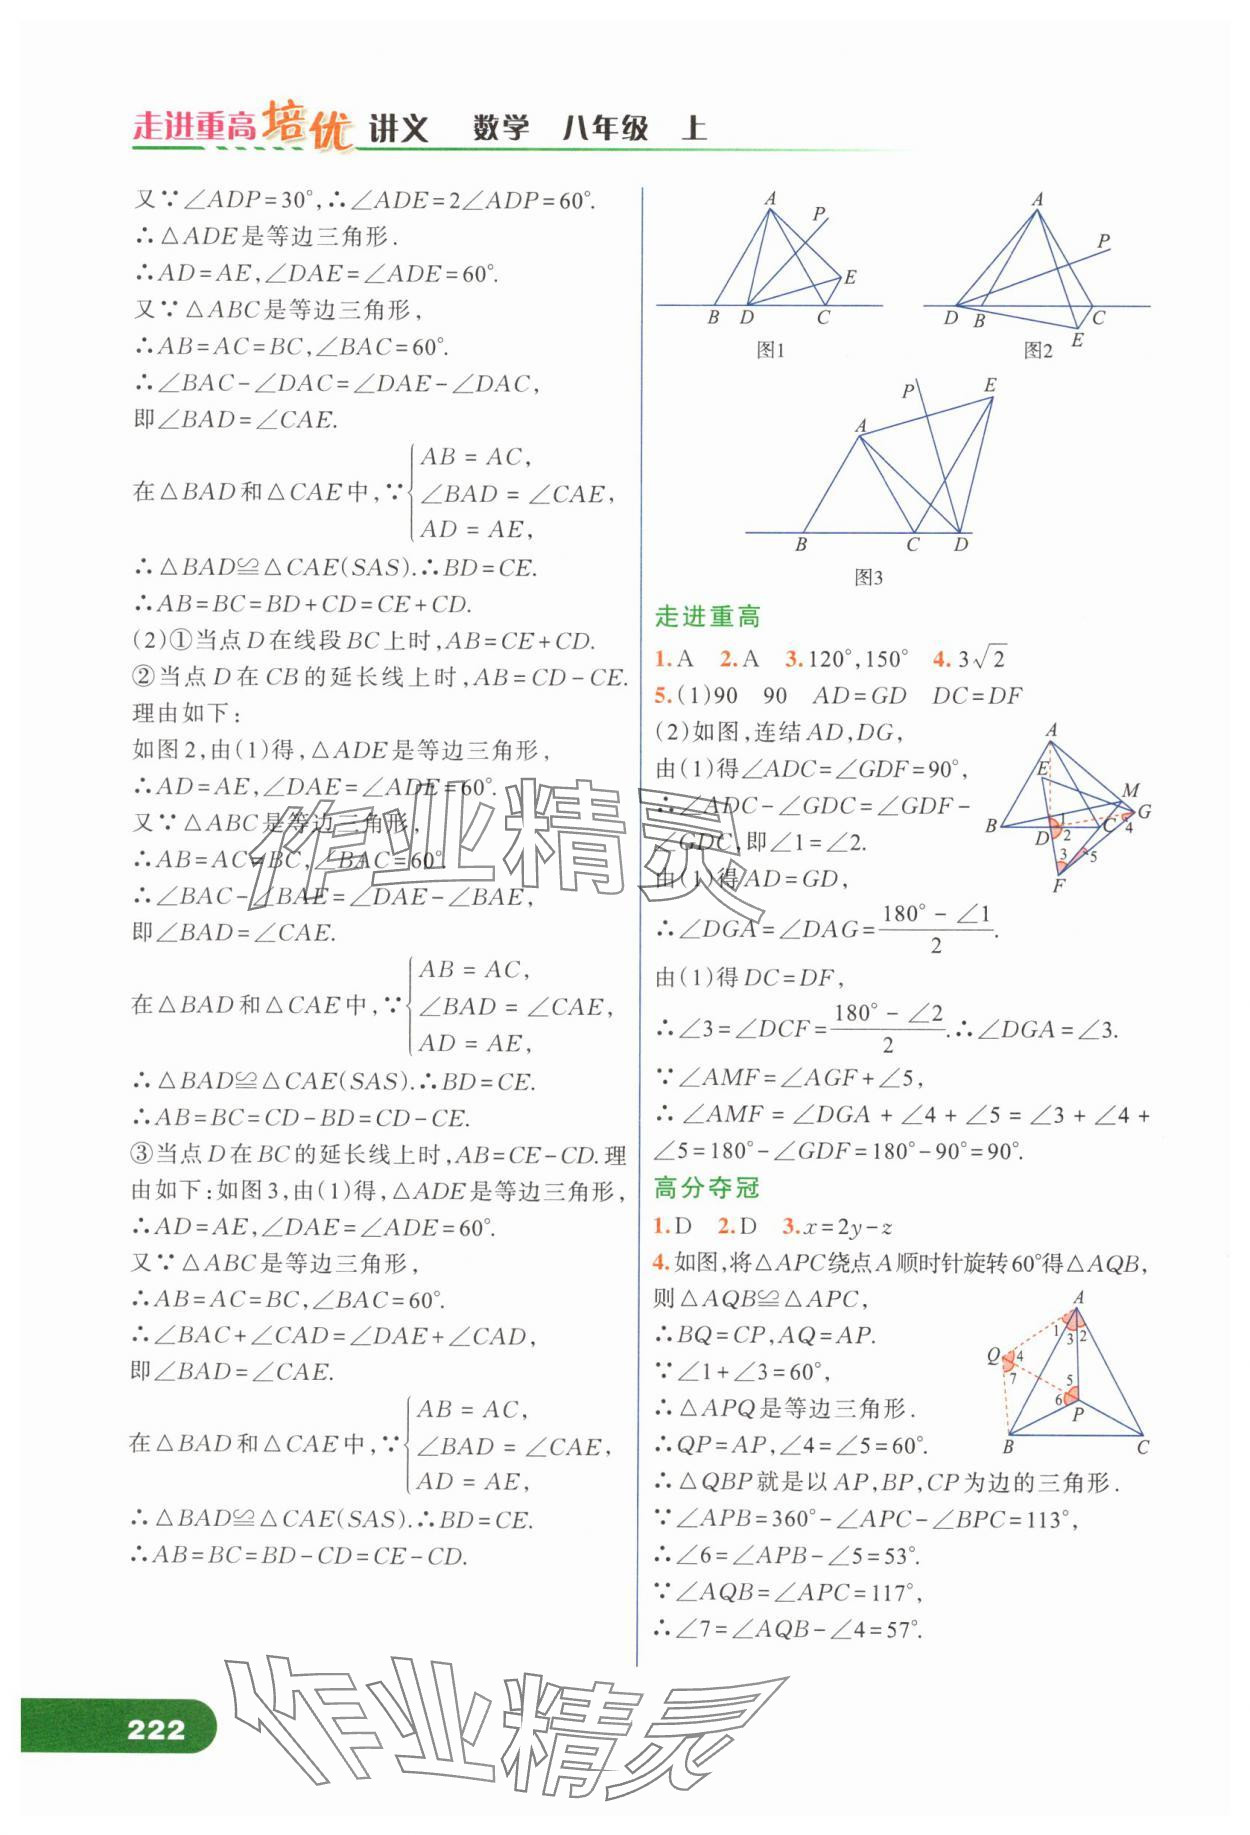 走进重高培优 讲义 数学 八年级 上
又∵∠ADP=30°,∴∠ADE=2∠ADP=60°.
∴△ADE是等边三角形.
∴AD=AE,∠DAE=∠ADE=60°.
又∵△ABC是等边三角形,
∴AB=AC=BC,∠BAC=60°.
∴∠BAC-∠DAC=∠DAE-∠DAC,
即∠BAD=∠CAE.
AB=AC,
在△BAD和△CAE中,∵ ∠BAD=∠CAE,
AD=AE,
∴△BAD≌△CAE(SAS).∴BD=CE.
∴AB=BC=BD+CD=CE+CD.
(2)①当点D在线段BC上时,AB=CE+CD.
②当点D在CB的延长线上时,AB=CD-CE.
理由如下:
如图2,由(1)得,△ADE是等边三角形,
∴AD=AE,∠DAE=∠ADE=60°.
又∵△ABC是等边三角形,
∴AB=AC=BC,∠BAC=60°.
∴∠BAC-∠BAE=∠DAE-∠BAE,
即∠BAD=∠CAE.
AB=AC,
在△BAD和△CAE中,∵ ∠BAD=∠CAE,
AD=AE,
∴△BAD≌△CAE(SAS).∴BD=CE.
∴AB=BC=CD-BD=CD-CE.
③当点D在BC的延长线上时,AB=CE-CD.理
由如下:如图3,由(1)得,△ADE是等边三角形,
∴AD=AE,∠DAE=∠ADE=60°.
又∵△ABC是等边三角形,
∴AB=AC=BC,∠BAC=60°.
∴∠BAC+∠CAD=∠DAE+∠CAD,
即∠BAD=∠CAE.
AB=AC,
在△BAD和△CAE中,∵ ∠BAD=∠CAE,
AD=AE,
∴△BAD≌△CAE(SAS).∴BD=CE.
∴AB=BC=BD-CD=CE-CD.
A P E B D C
图1
A P D B C E
图2
P E A B C D
图3
走进重高
1.A 2.A 3.120°,150° 4.3√2
5.(1)90 90 AD=GD DC=DF
(2)如图,连结AD,DG,
由(1)得∠ADC=∠GDF=90°,
∴∠ADC-∠GDC=∠GDF-
∠GDC,即∠1=∠2.
由(1)得AD=GD,
∴∠DGA=∠DAG=(180°-∠1)/2.
由(1)得DC=DF,
∴∠3=∠DCF=(180°-∠2)/2.∴∠DGA=∠3.
∵∠AMF=∠AGF+∠5,
∴∠AMF=∠DGA+∠4+∠5=∠3+∠4+
∠5=180°-∠GDF=180°-90°=90°.
A E M G B D 1 2 C 4 3 5 F
高分夺冠
1.D 2.D 3.x=2y-z
4.如图,将△APC绕点A顺时针旋转60°得△AQB,
则△AQB≌△APC,
∴BQ=CP,AQ=AP.
∵∠1+∠3=60°,
∴△APQ是等边三角形.
∴QP=AP,∠4=∠5=60°.
∴△QBP就是以AP,BP,CP为边的三角形.
∵∠APB=360°-∠APC-∠BPC=113°,
∴∠6=∠APB-∠5=53°.
∵∠AQB=∠APC=117°,
∴∠7=∠AQB-∠4=57°.
A 1 3 2 Q 4 7 5 6 P B C
222
作业精灵
作业精灵